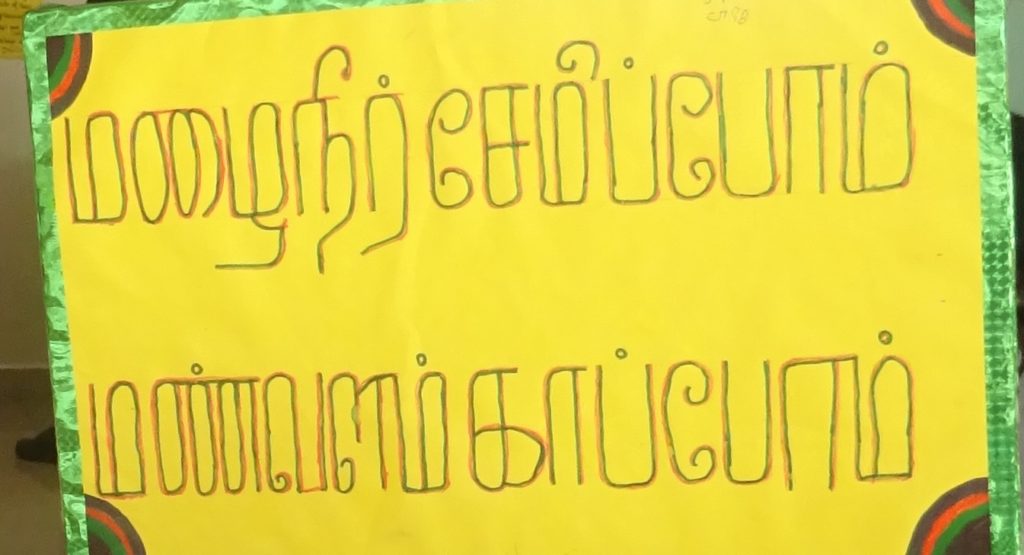 மழைநீர் சேமிப்போம்
மண்வளம் காப்போம்